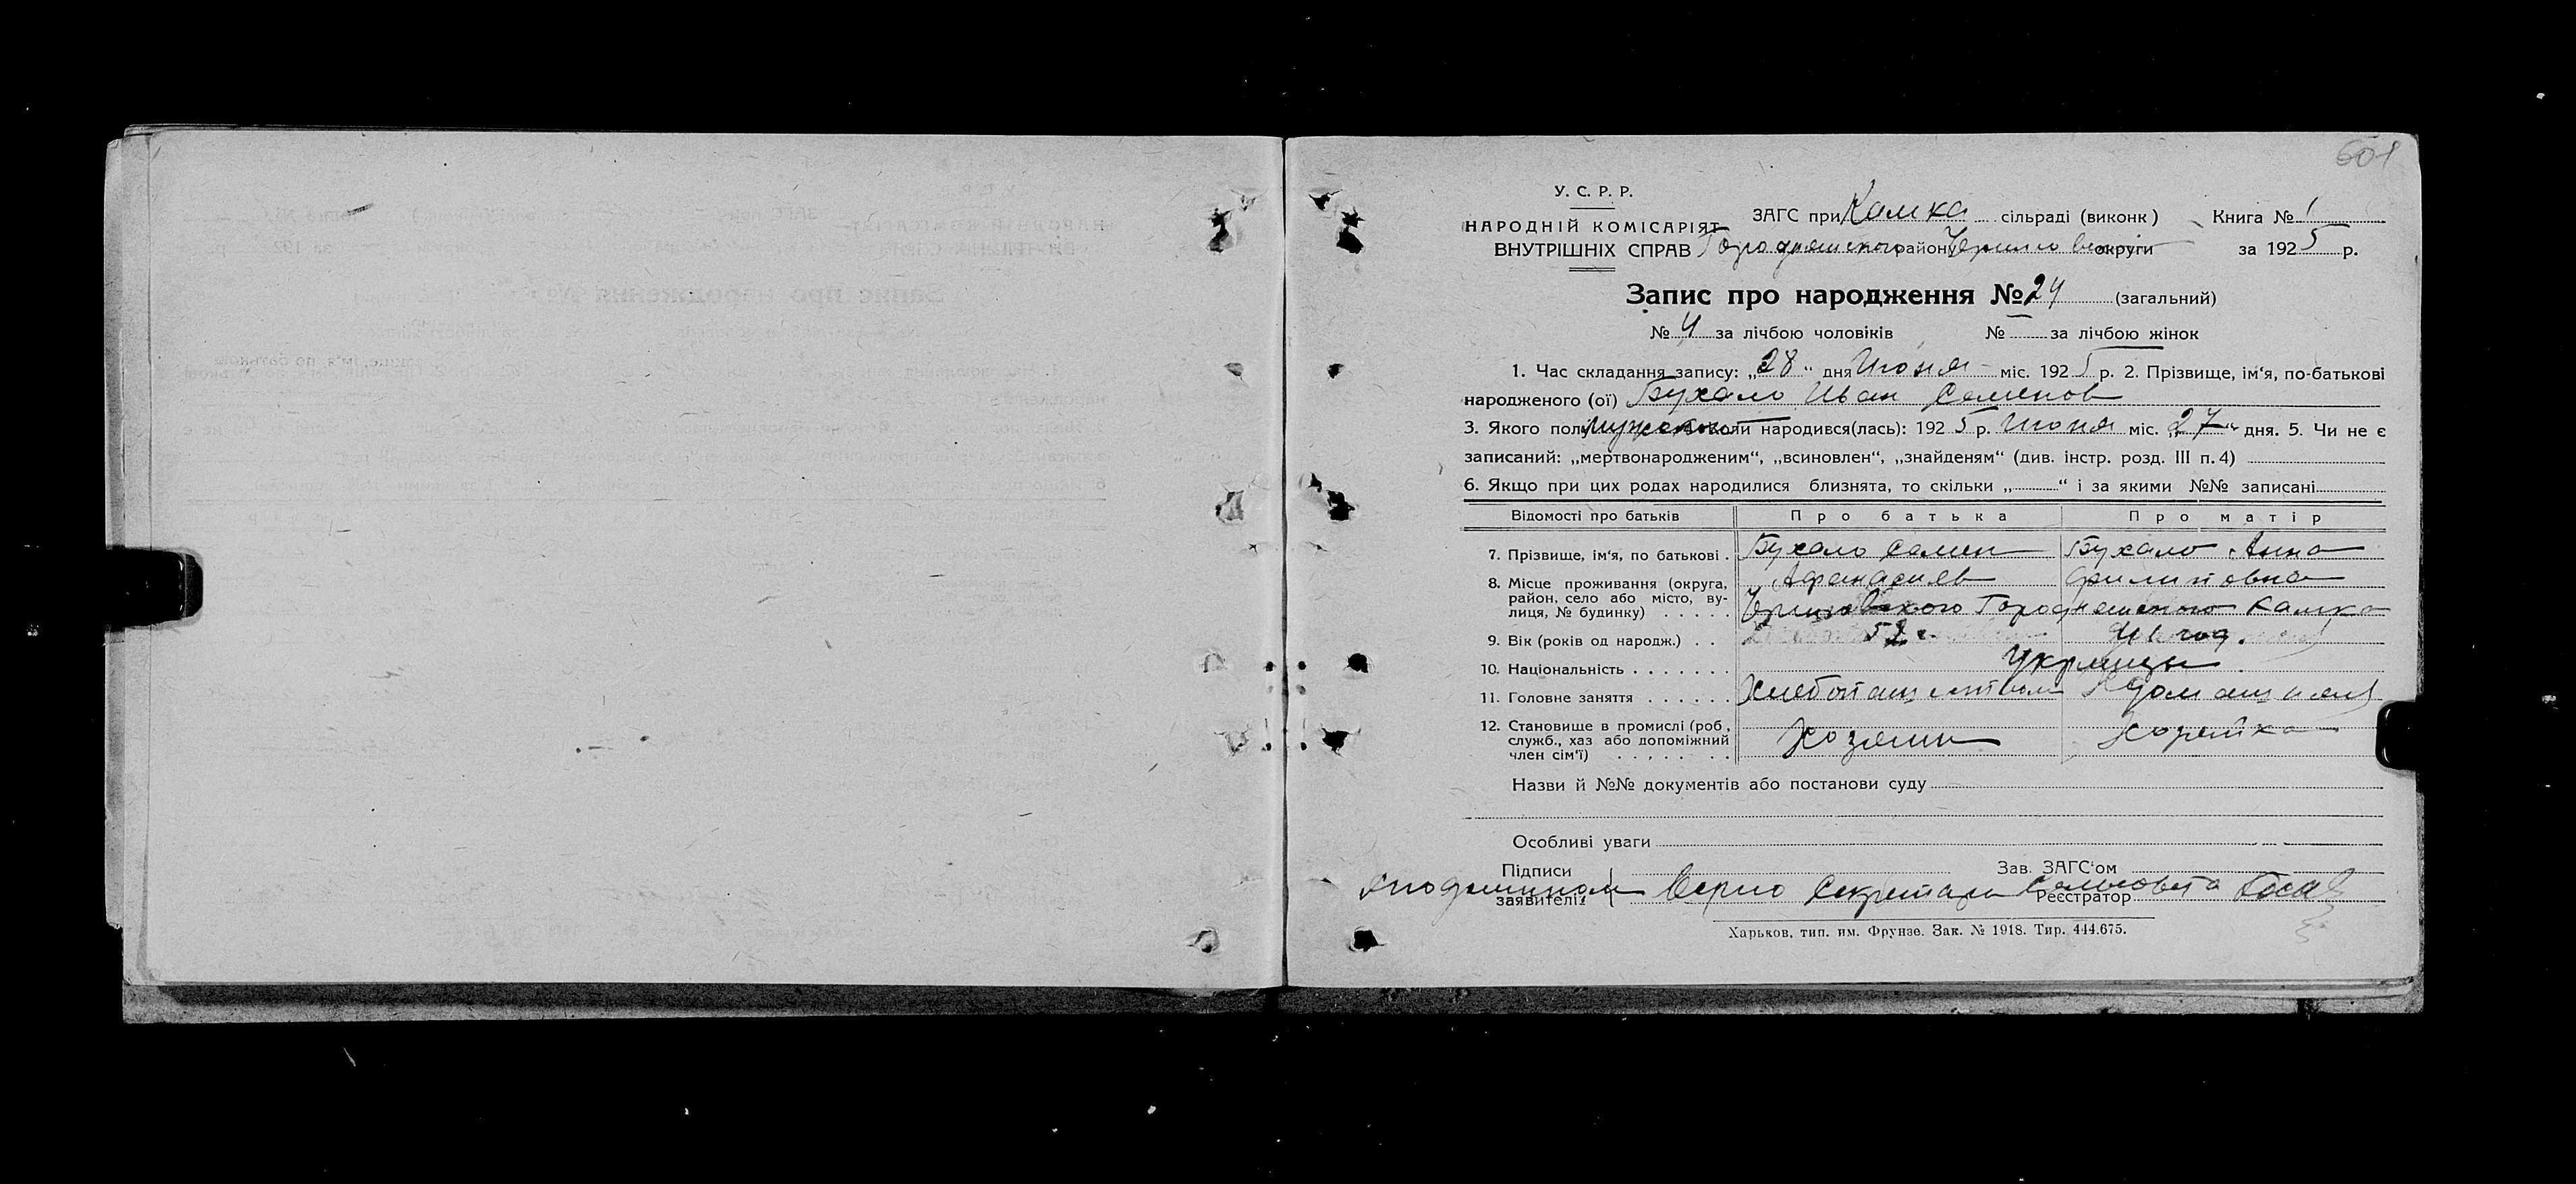 601
У. С. Р. Р.
НАРОДНІЙ КОМІСАРІЯТ
ВНУТРІШНІХ СПРАВ
ЗАГС при Камка сільраді (виконк) Книга № 1
Городнянского район Чернигов округи за 1925 р.
Запис про народження № 24 (загальний)
№ 4 за лічбою чоловіків № — за лічбою жінок
1. Час складання запису: „28“ дня Июня міс. 1925 р. 2. Прізвище, ім‘я, по-батькові
народженого (ої) Бухало Иван Семенов
3. Якого полу мужского коли народився(лась): 1925 р. Июня міс. „27“ дня. 5. Чи не є
записаний: „мертвонародженим“, „всиновлен“, „знайденям“ (див. інстр. розд. III п. 4)
6. Якщо при цих родах народилися близнята, то скільки „ “ і за якими №№ записані
Відомості про батьків Про батька Про матір
7. Прізвище, ім‘я, по батькові . Бухало Семен Бухало Анна
Афанасиев Филиповна
8. Місце проживання (округа, район, село або місто, вулиця, № будинку) . . . . . Черниговского Городнянского Камка
9. Вік (років од народж.) . . 52 г. 41 год.
10. Національність . . . . . . . Украинцы
11. Головне заняття . . . . . . Хлебопашеством Домашняя
12. Становище в промислі (роб, служб., хаз або допоміжний член сім‘ї) . . . . . . . Хозяин Хозяйка
Назви й №№ документів або постанови суду
Особливі уваги
Підписи Зав. ЗАГС‘ом
заявителів с подлинном Верно Секретарь Сельсовета Реєстратор
Харьков, тип. им. Фрунзе. Зак. № 1918. Тир. 444.675.